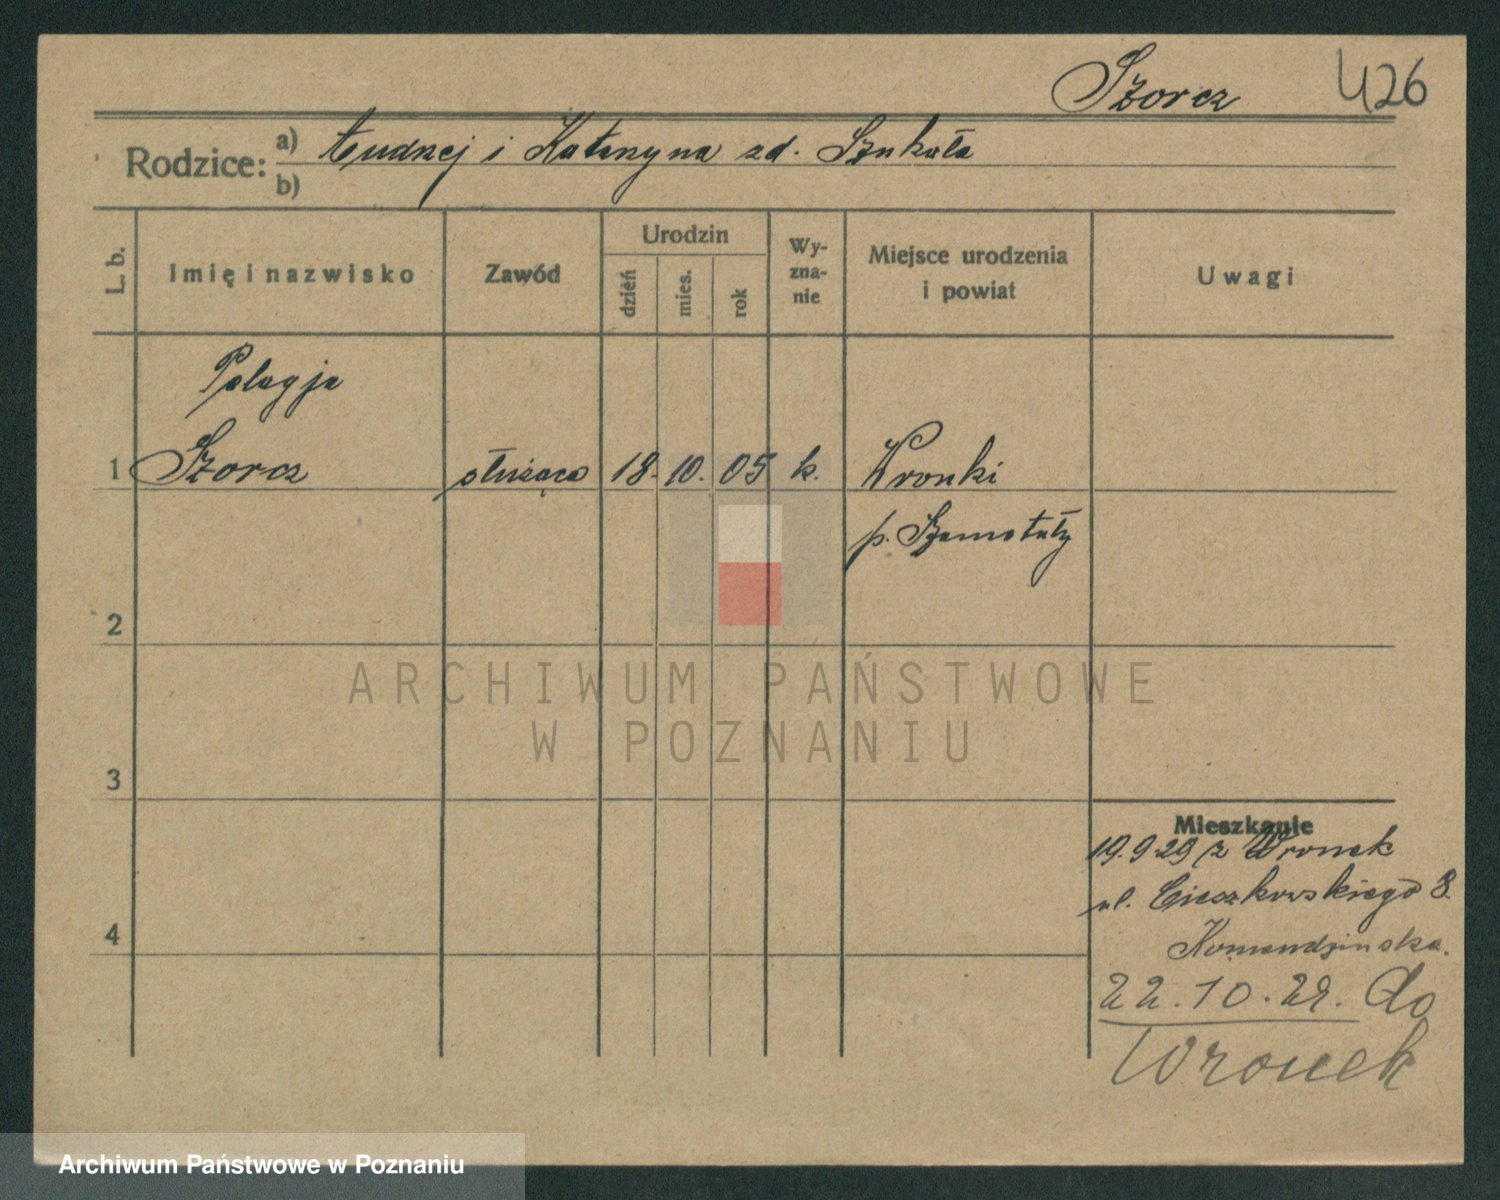 Szorcz 426
Rodzice: a) Andrzej i Katarzyna zd. Szukała
b)
L. b. Imię i nazwisko Zawód Urodzin dzień mies. rok Wy-zna-nie Miejsce urodzenia i powiat Uwagi
Pelagja
1 Szorcz służąca 18. 10. 05 k. Wronki
p. Szamotuły
2
ARCHIWUM PAŃSTWOWE
W POZNANIU
3
Mieszkanie
19.9.29 z Wronek
ul. Cieszkowskiego 8.
4
22.10.29. do
Wronek
Archiwum Państwowe w Poznaniu